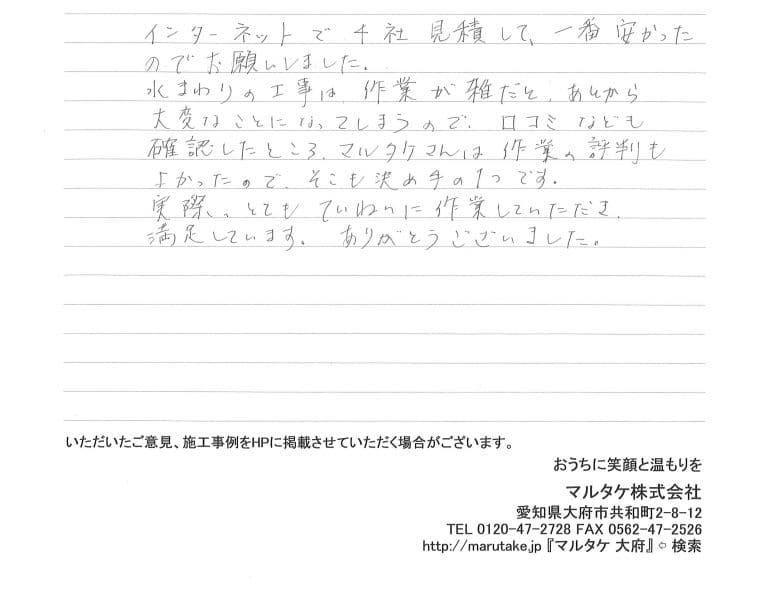 インターネットで4社見積して、一番安かった
のでお願いしました。
水まわりの工事は、作業が雑だと、あとから
大変なことになってしまうので、口コミなども
確認したところ、マルタケさんは作業の評判も
よかったので、そこも決め手の1つです。
実際、とてもていねいに作業していただき、
満足しています。ありがとうございました。
いただいたご意見、施工事例をHPに掲載させていただく場合がございます。
おうちに笑顔と温もりを
マルタケ株式会社
愛知県大府市共和町2-8-12
TEL 0120-47-2728 FAX 0562-47-2526
http://marutake.jp『マルタケ 大府』⇦ 検索